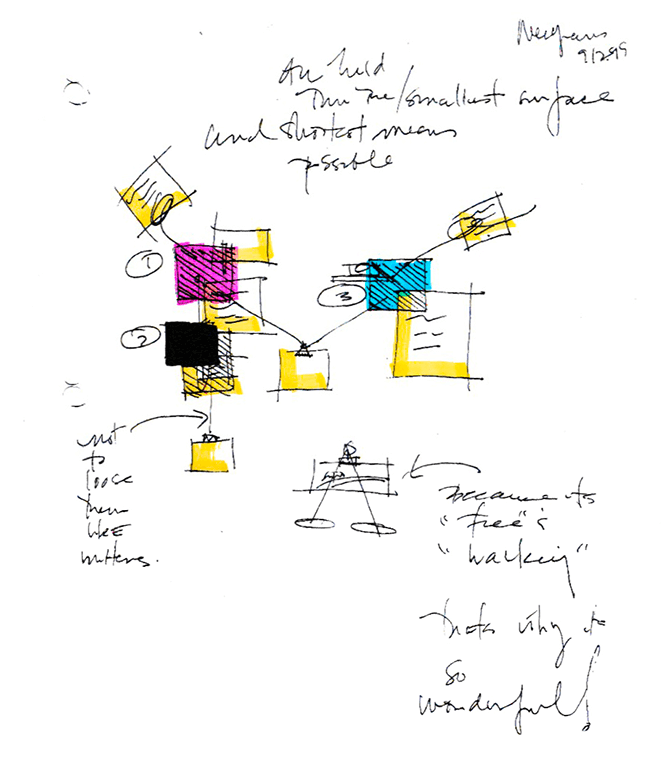 9/2.99
All held
Thru the/smallest surface
and shortest means
pssible
1
3
2
not
to
loose
them
like
mittens.
because its
"free" &
"walking"
thats why its
so
wonderful!